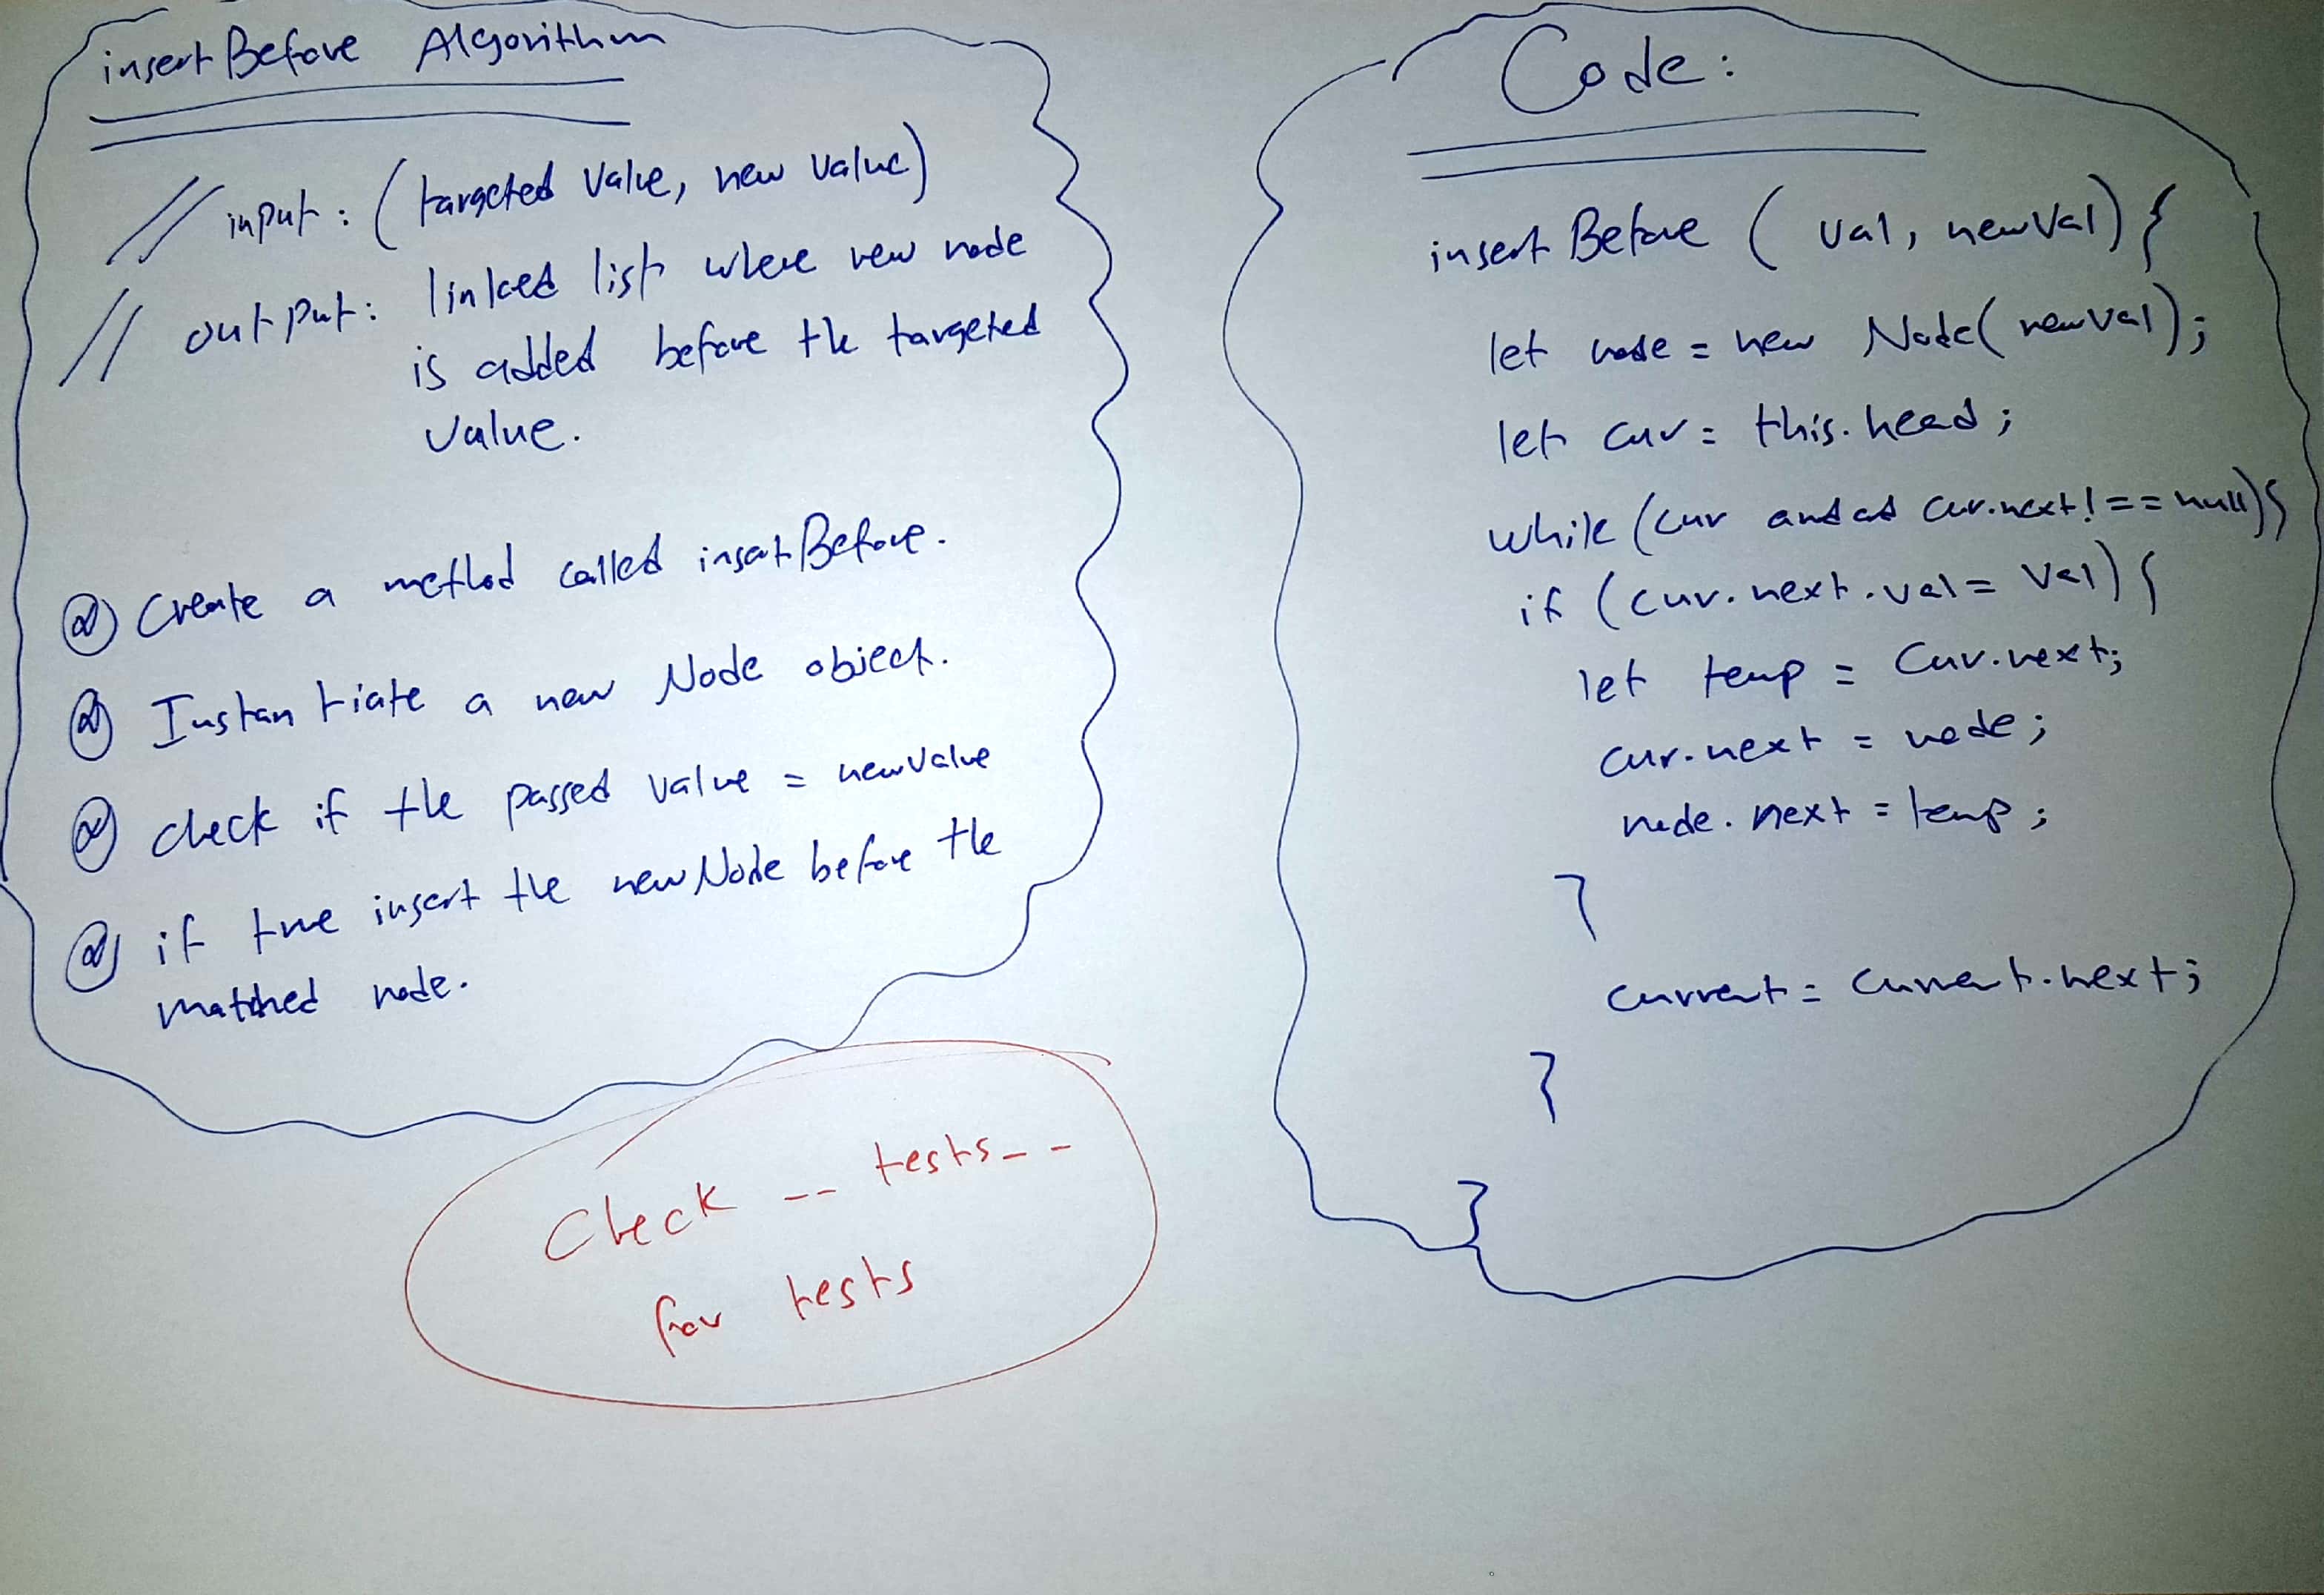 insertBefore Algorithm
// input: (targeted value, new value)
// output: linked list where new node
is added before the targeted
value.
@ Create a method called insertBefore.
@ Instantiate a new Node object.
@ check if the passed value = newvalue
@ if true insert the newNode before the
matched node.
Check -- tests--
for tests
Code:
insertBefore (val, newVal) {
let node = new Node(newval);
let cur = this.head;
while (cur and cur.next !== null) {
if (cur.next.val = val) {
let temp = cur.next;
cur.next = node;
node.next = temp;
}
current = current.next;
}
}